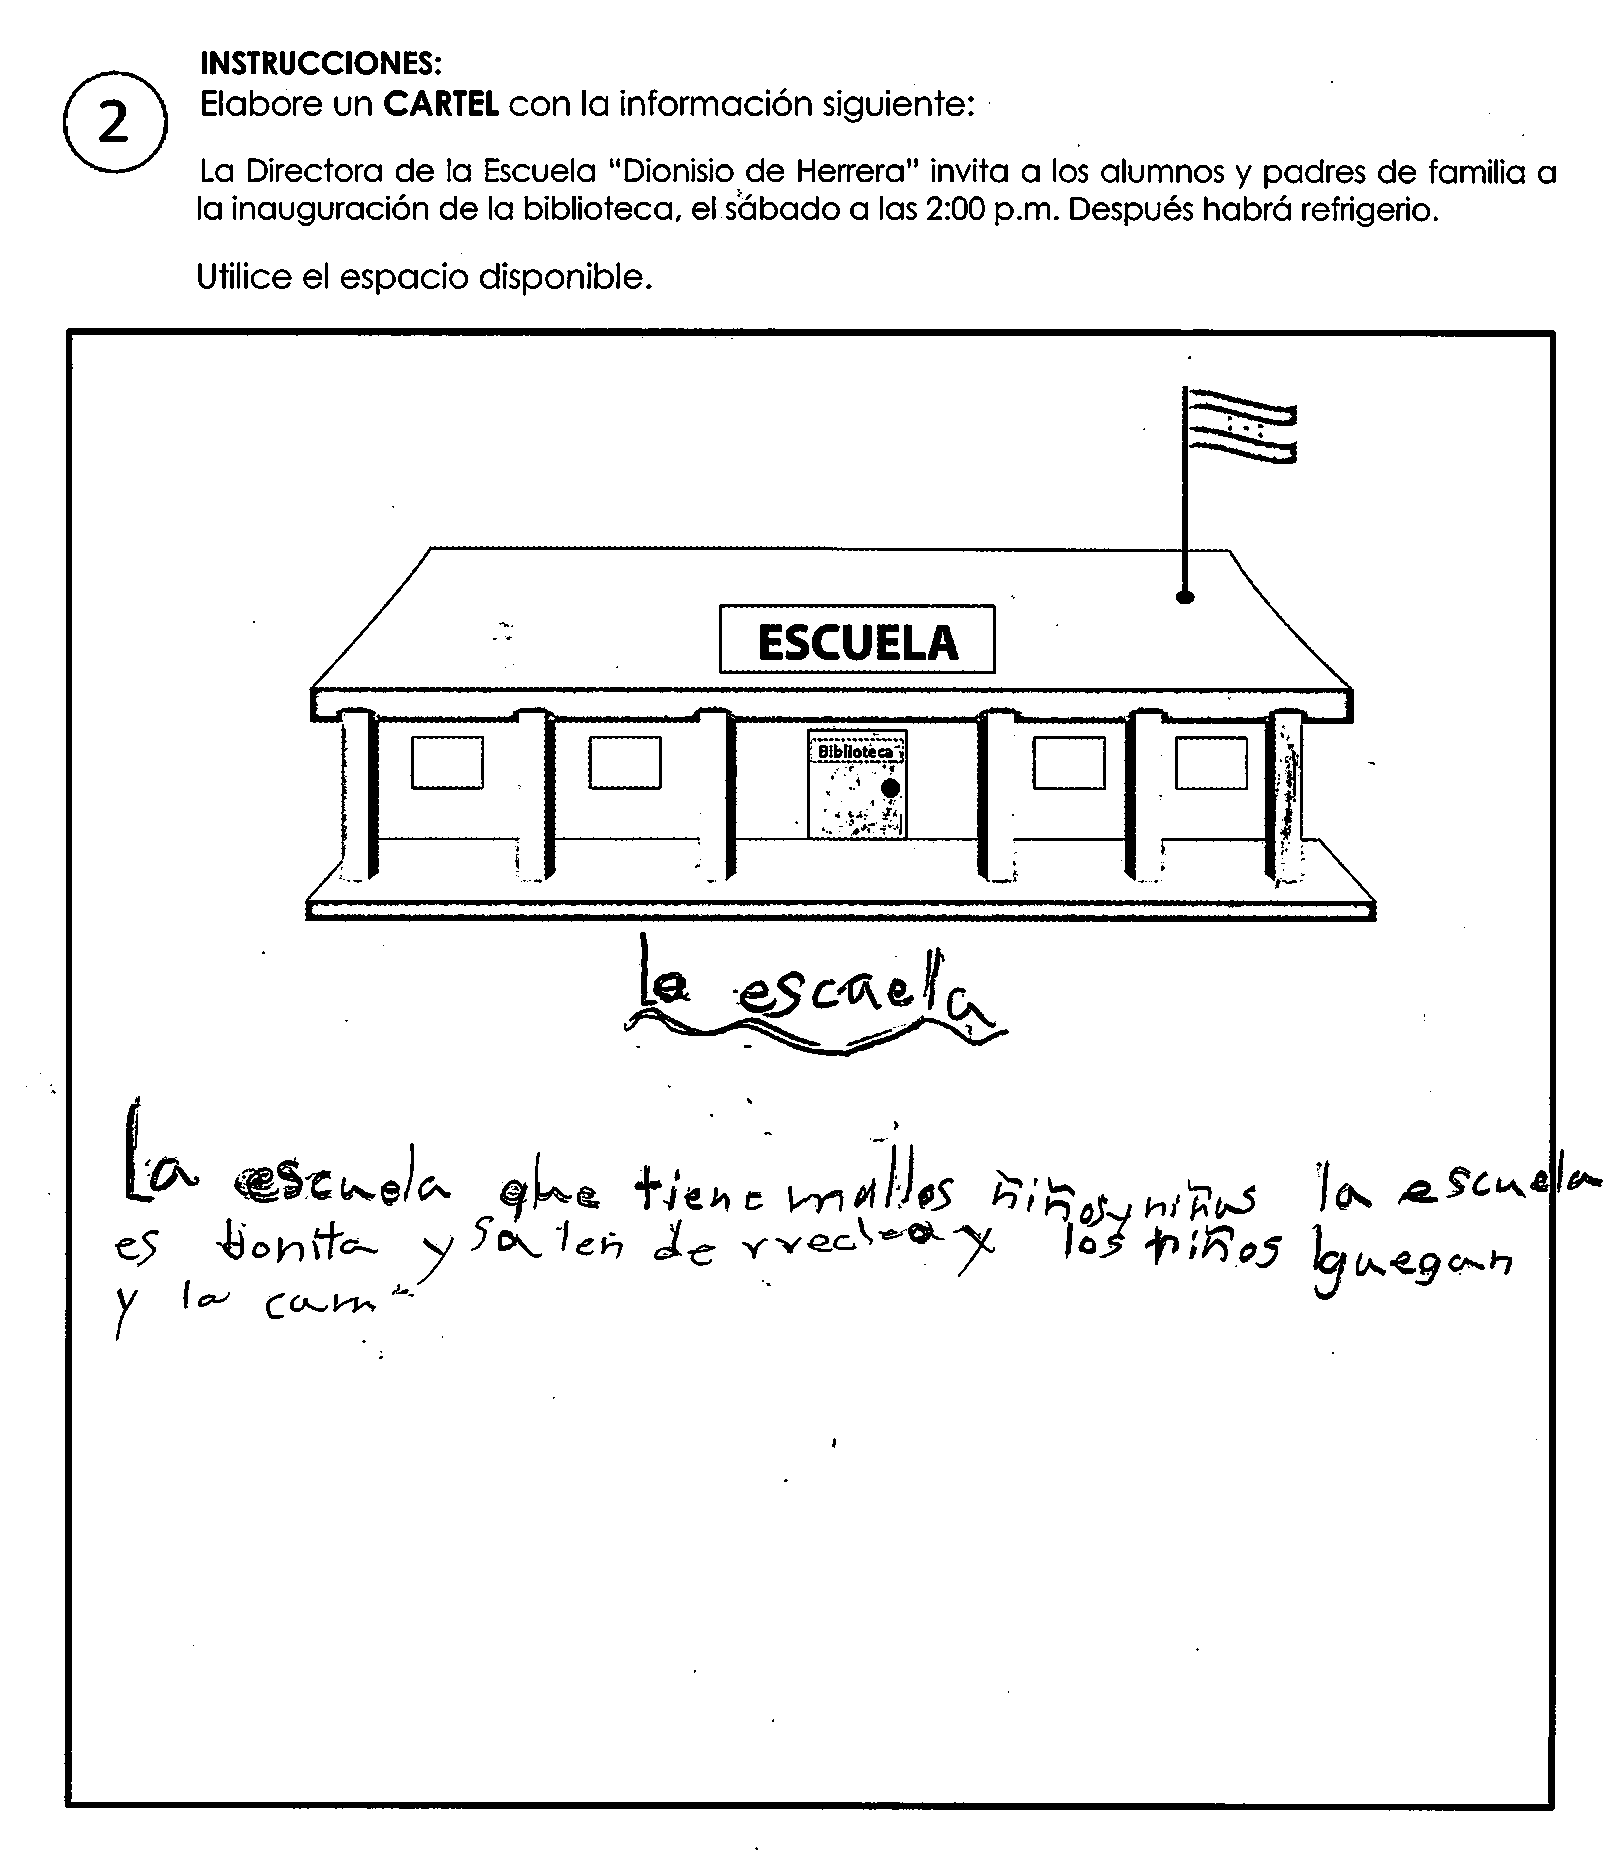 INSTRUCCIONES:
2
Elabore un CARTEL con la información siguiente:
La Directora de la Escuela "Dionisio de Herrera" invita a los alumnos y padres de familia a
la inauguración de la biblioteca, el sábado a las 2:00 p.m. Después habrá refrigerio.
Utilice el espacio disponible.
ESCUELA
Biblioteca
La escaella
La escuela que tiene mallos niños y niñas la escuela
es bonita y salen de rrecleo y los niños guegan
y la cam